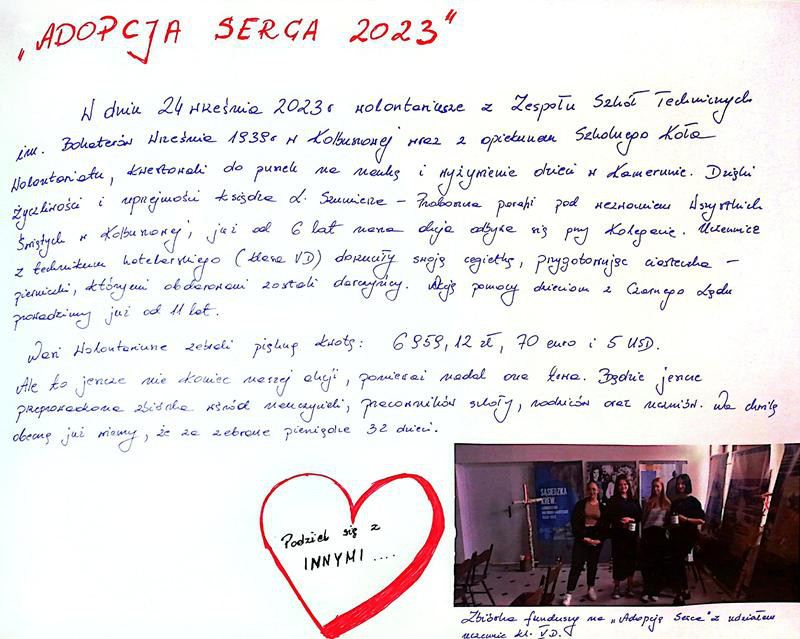 „ADOPCJA SERCA 2023"
W dniu 24 września 2023r wolontariusze z Zespołu Szkół Technicznych
im. Bohaterów Września 1939r w Kolbuszowej wraz z opiekunami Szkolnego Koła
Wolontariatu, kwestowali do puszek na naukę i wyżywienie dzieci w Kamerunie. Dzięki
życzliwości i uprzejmości księdza L. Szumierza – Proboszcza parafii pod wezwaniem Wszystkich
Świętych w Kolbuszowej, już od 6 lat nasza akcja odbywa się przy Kolegiacie. Uczennice
z technikum hotelarskiego (klasa VD) dorzuciły swoją cegiełkę, przygotowując ciasteczka –
pierniczki, którymi obdarowani zostali darczyńcy. Akcję pomocy dzieciom z Czarnego Lądu
prowadzimy już od 11 lat.
Nasi Wolontariusze zebrali piękną kwotę: 6959,12 zł, 70 euro i 5 USD.
Ale to jeszcze nie koniec naszej akcji, ponieważ nadal ona trwa. Będzie jeszcze
przeprowadzona zbiórka wśród nauczycieli, pracowników szkoły, rodziców oraz uczniów. Na chwilę
obecną już wiemy, że za zebrane pieniądze 32 dzieci.
Podziel się z
INNYMI ....
SĄSIEDZKA
KREW.
Zbiórka funduszy na „Adopcję Serca" z udziałem
uczennic kl. VD.